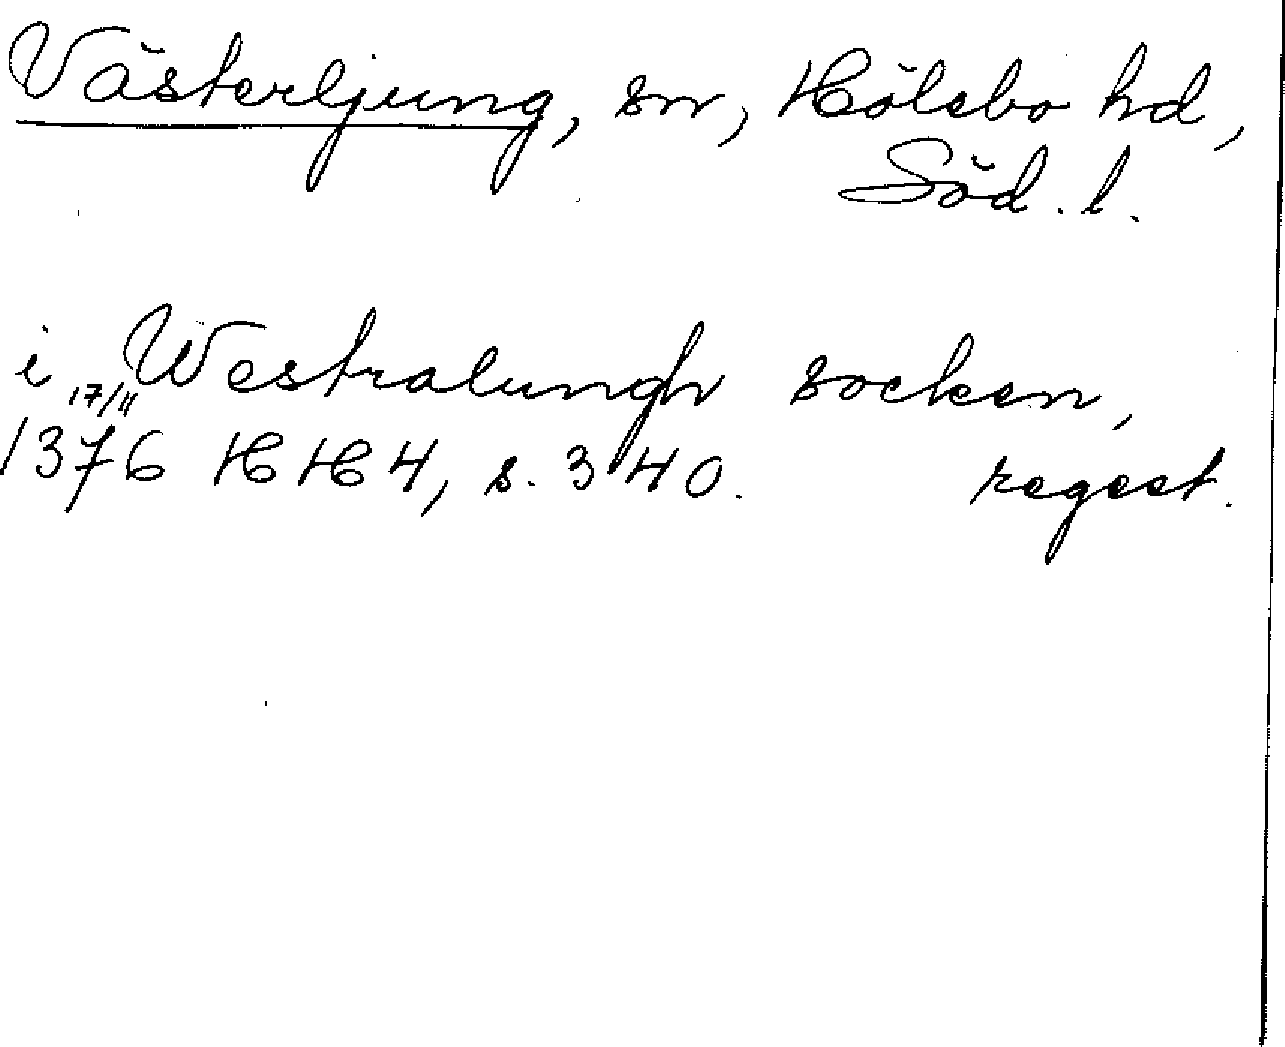 Västerljung, sn, Hölebo hd,
Söd. l.
i Westralungh socken,
17/11
1376 HH 4, s. 340. regest.